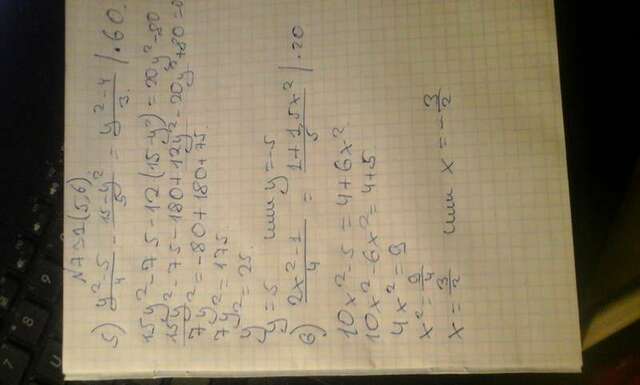 N 7321(5,6)
5) (y²-5)/4 - (15-y²)/5 = (y²-4)/3. | ·60.
15y²-75-12(15-y²)=20y²-80
15y²-75-180+12y²-20y²+80=0
7y²=-80+180+75.
7y²=175.
y²=25.
y=5 или y=-5
6) (2x²-1)/4 = (1+1,5x²)/5 | ·20
10x²-5=4+6x².
10x²-6x²=4+5
4x²=9
x²=9/4
x=3/2 или x=-3/2